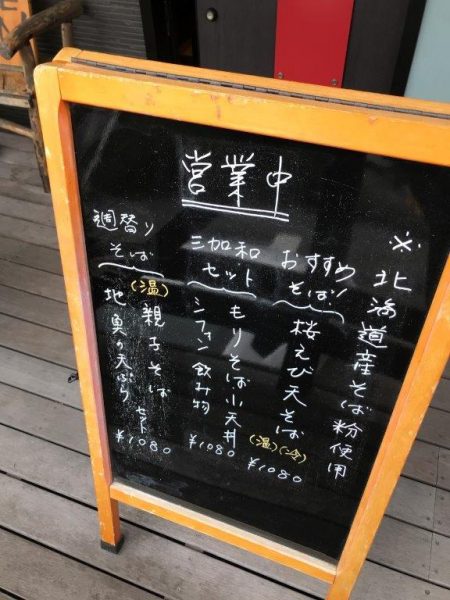 営業中
※北海道産そば粉使用
おすすめ
そば!
桜えび天そば
(温)(冷)
¥1080
三加和
セット
もりそば小天丼
シフォン飲み物
¥1080
週替り
そば
(温)
親子そば
セット
地魚の天ぷら
¥1080